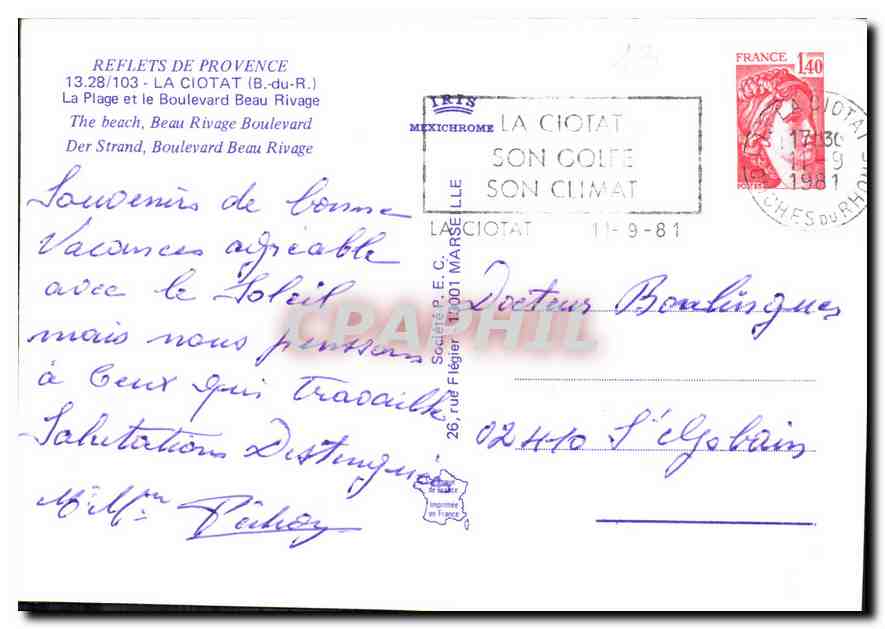 REFLETS DE PROVENCE
13.28/103 - LA CIOTAT (B.-du-R.)
La Plage et le Boulevard Beau Rivage
The beach, Beau Rivage Boulevard
Der Strand, Boulevard Beau Rivage
IRIS
MEXICHROME
LA CIOTAT
SON GOLFE
SON CLIMAT
LA CIOTAT 11-9-81
FRANCE 1,40
LA CIOTAT
17H30
11-9
1981
BCHES DU RHONE
Souvenirs de bonne
Vacances agréable
avec le Soleil
mais nous pensson
à Ceux qui travaille
Salutations Distingués
Mr Mme
Société P.E.C.
26, rue Flégier 13001 MARSEILLE
Docteur
02410 St Gobain
Imprimée
en France
CPAPHIL